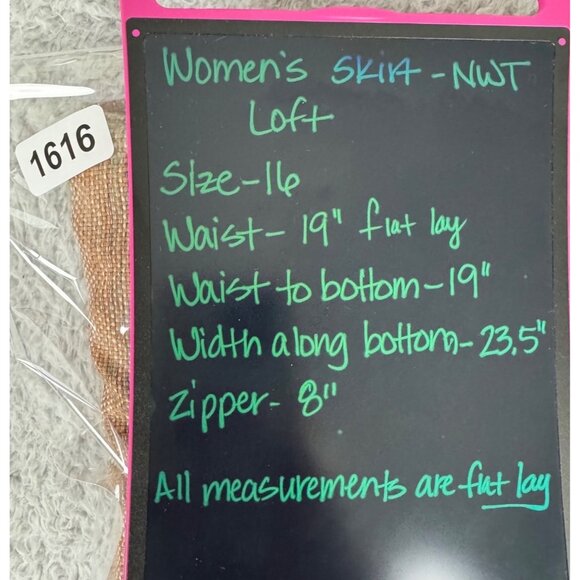 Women's Skirt - NWT
Loft
1616
Size - 16
Waist - 19" flat lay
Waist to bottom - 19"
Width along bottom - 23.5"
Zipper - 8"
All measurements are flat lay